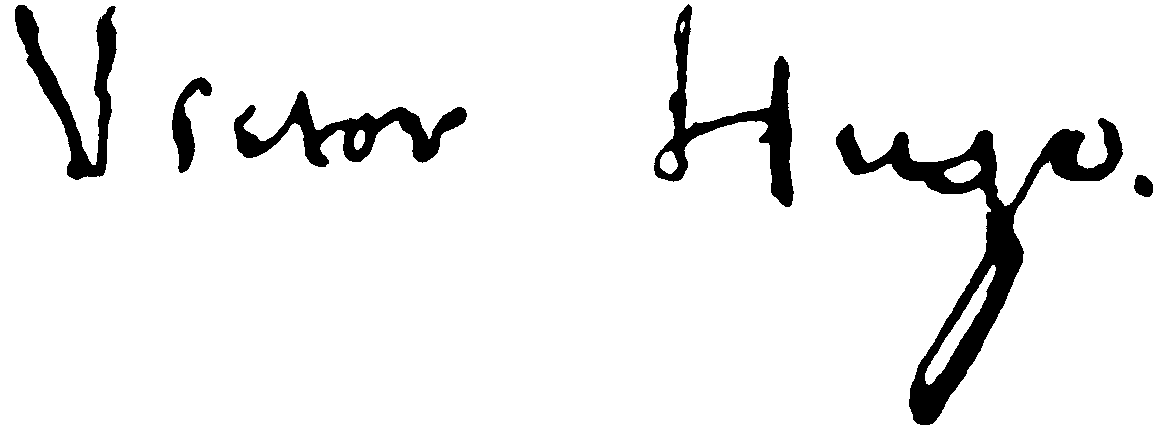 Victor Hugo.